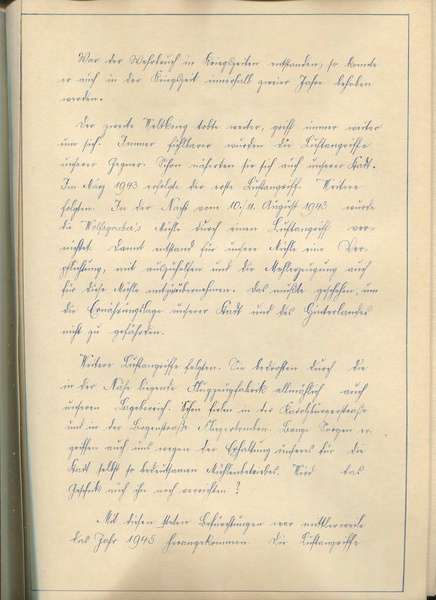 War der Wehrbruch in Kriegszeiten entstanden, so konnte
er auch in der Kriegszeit innerhalb zweier Jahre behoben
werden.
Der zweite Weltkrieg tobte weiter, griff immer weiter
um sich. Immer fühlbarer wurden die Luftangriffe
unserer Gegner. Schon näherten sie sich auch unserer Stadt.
Im März 1943 erfolgte der erste Luftangriff. Weitere
folgten. In der Nacht vom 10./11. August 1943 wurde
die Mühle durch einen Luftangriff ver-
nichtet. Damit entstand für unsere Mühle eine Ver-
pflichtung, mit auszuhelfen und die Mehlerzeugung auch
für diese Mühle mitzuübernehmen. Das mußte geschehen, um
die Ernährungslage unserer Stadt und des Hinterlandes
nicht zu gefährden.
Weitere Luftangriffe folgten. Sie bedrohten durch die
in der Nähe liegende Flugzeugfabrik allmählich auch
unseren Bereich. Schon fielen in der
und in der Bogenstraße Fliegerbomben. Bange Sorgen er-
griffen auch uns wegen der Erhaltung unseres für die
Stadt selbst so bedeutsamen Mühlenbetriebes. Wird das
Geschick auch ihn noch vernichten?
Mit diesen steten Befürchtungen war mittlerweile
das Jahr 1945 herangekommen. Die Luftangriffe